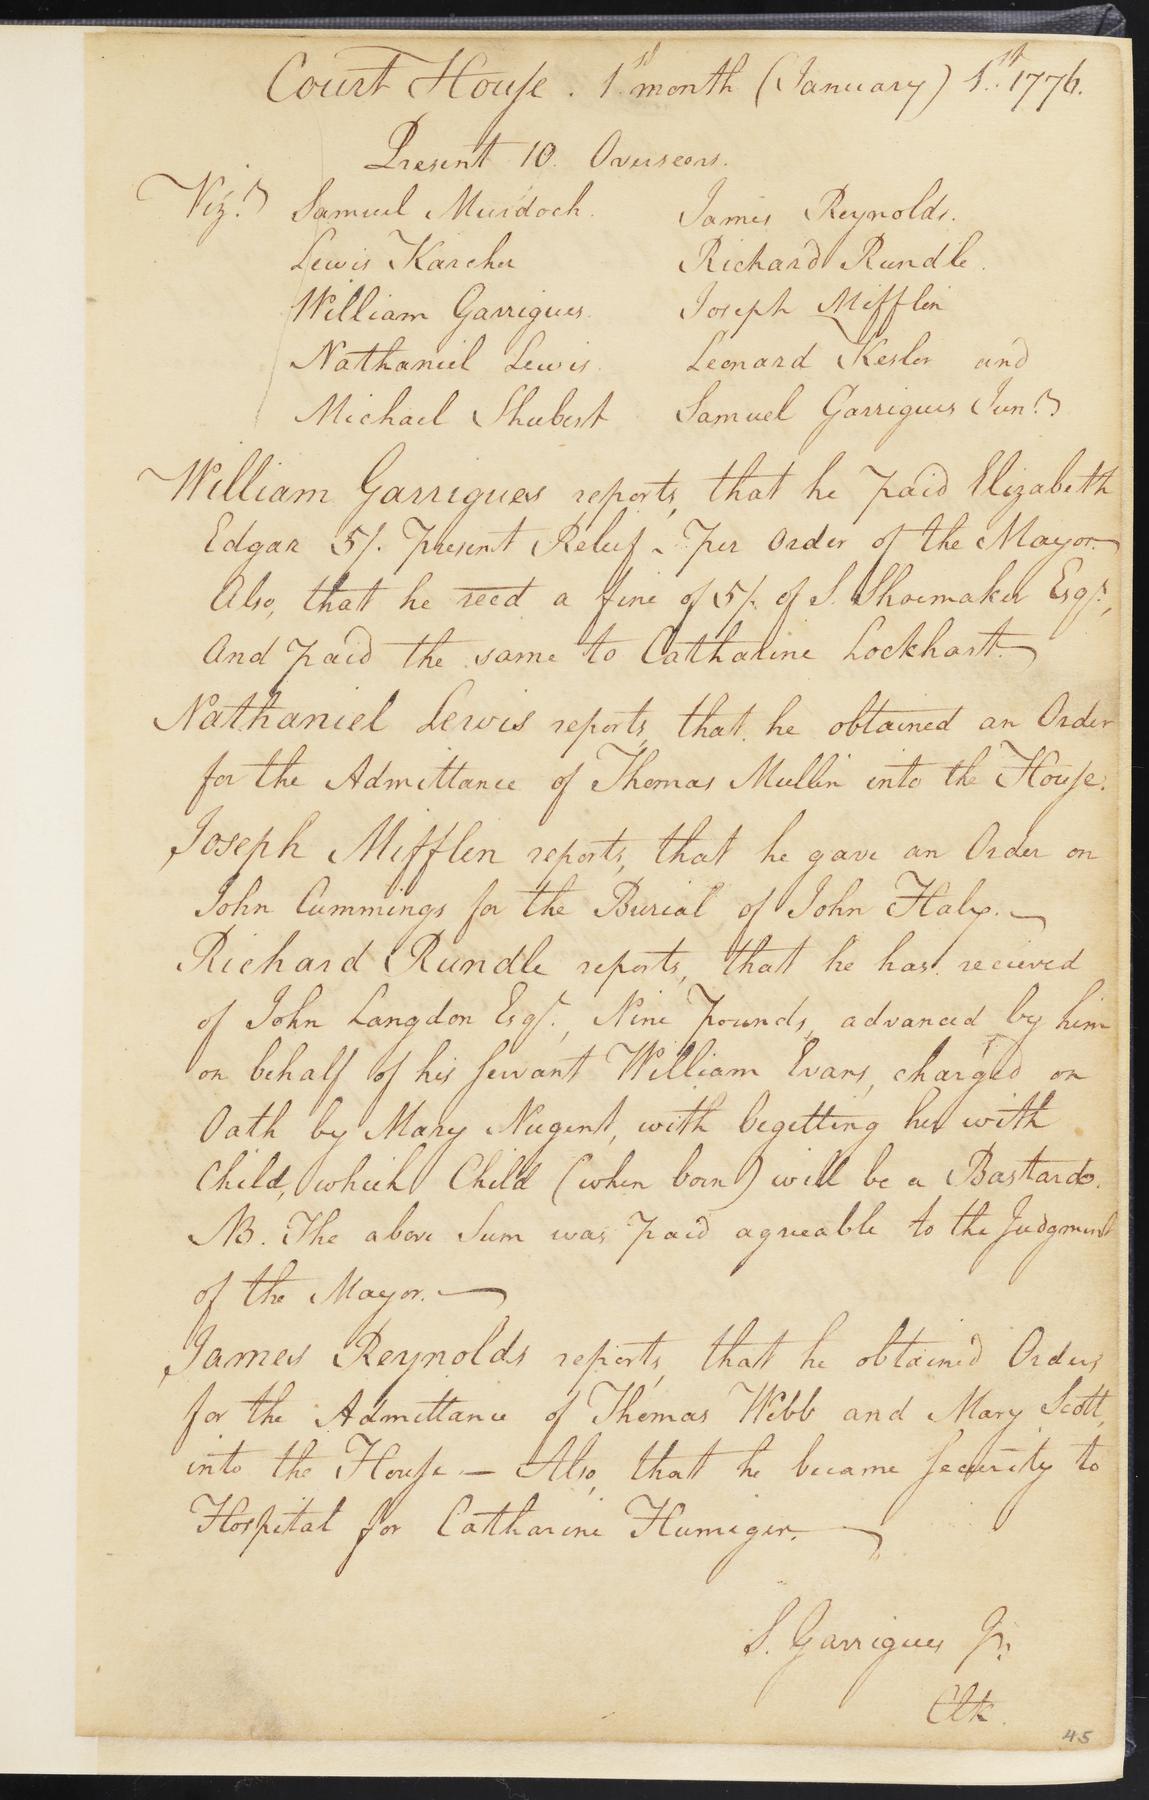 Court House. 1st month (January) 1st 1776.
Present 10 Overseers.
Vizt. Samuel Murdoch. James Reynolds.
Lewis Karcher Richard Rundle.
William Garrigues. Joseph Mifflin
Nathaniel Lewis. Leonard Kesler and
Michael Shubert Samuel Garrigues Junr.
William Garrigues reports, that he paid Elizabeth
Edgar 5/. present Releif - per Order of the Mayor.
Also, that he recd a fine of 5/. of S. Shoemaker Esqr.,
And paid the same to Catharine Lockhart.
Nathaniel Lewis reports, that he obtained an Order
for the Admittance of Thomas Mullin into the House.
Joseph Mifflin reports, that he gave an Order on
John Cummings for the Burial of John Haly.
Richard Rundle reports, that he has recieved
of John Langdon Esqr., Nine Pounds, advanced by him
on behalf of his Servant William Evans, charged on
Oath by Mary Nugent, with begetting her with
Child, which Child (when born) will be a Bastard.
NB. The above Sum was paid agreable to the Judgment
of the Mayor.
James Reynolds reports, that he obtained Orders
for the Admittance of Thomas Webb and Mary Scott,
into the House — Also, that he became Security to
Hospital for Catharine Humiger.
S. Garrigues Jr.
Clk.
45